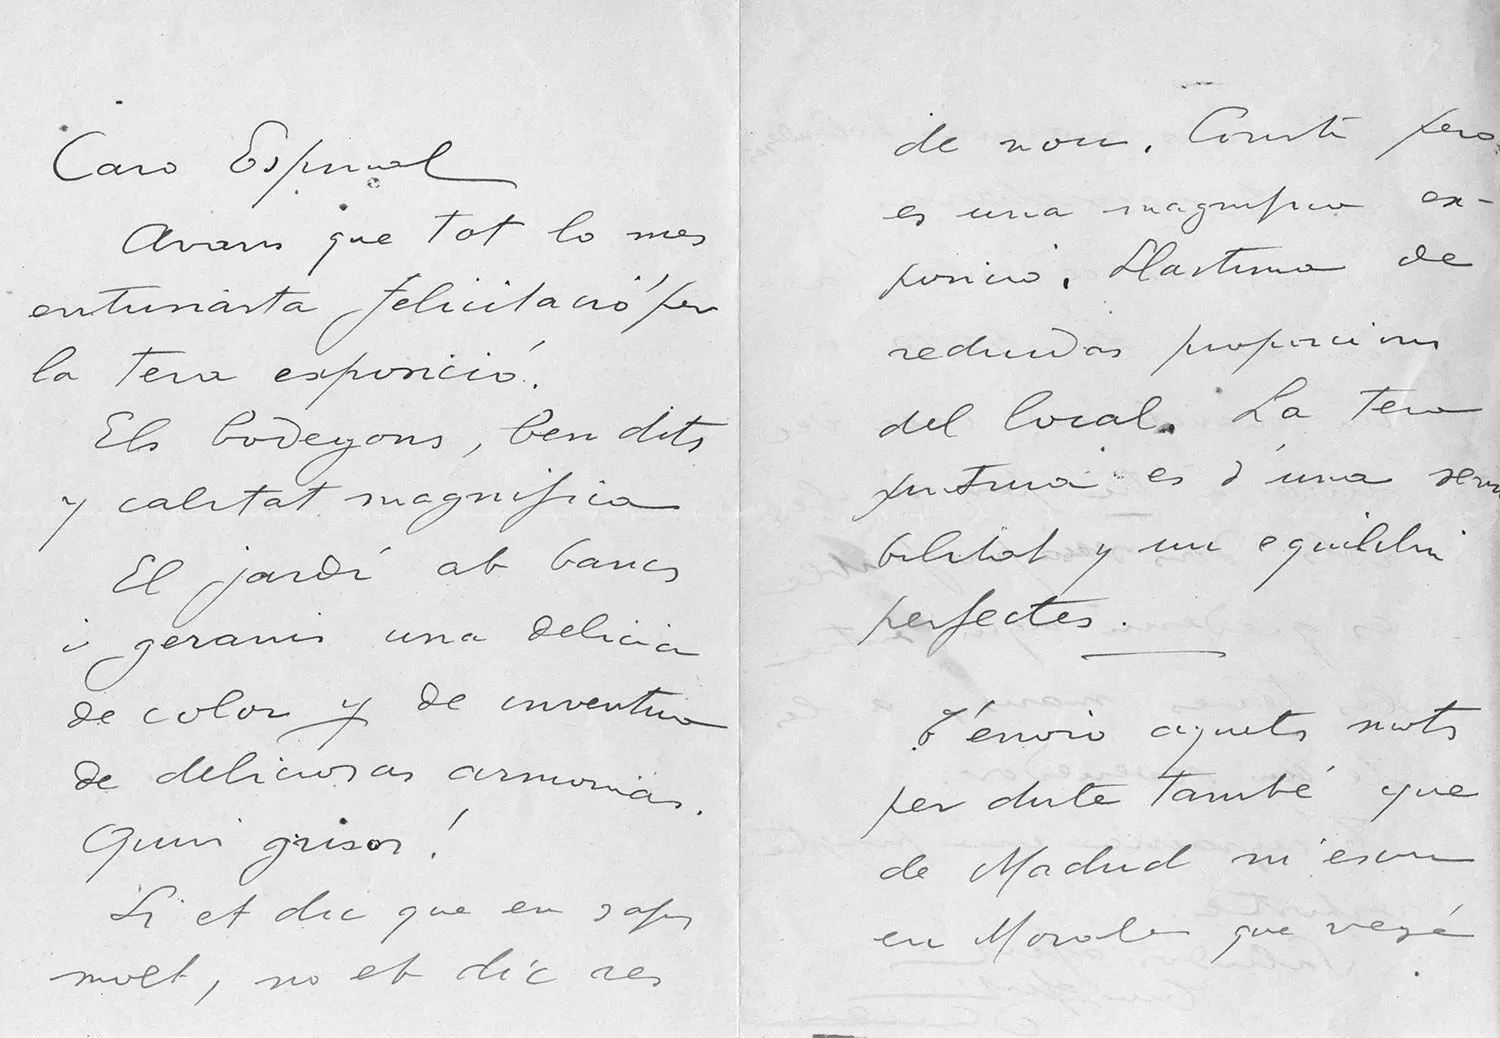 Caro Espinal
Avans que tot lo mes
entusiasta felicitació per
la teva exposició.
Els bodegons, ben dits
y calitat magnifica
El jardí ab bancs
i geranis una delicia
de color y de inventiva
de deliciosas armonias.
Quins grisos!
Si et dic que en saps
molt, no et dic res
de nou. Consti pero
es una magnifica ex-
posició. Llastima de
reduidas proporcions
del local. La teva
pintura es d'una sensi
bilitat y un equilibri
perfectes.
T'envio aquets mots
per dirte també que
de Madrid m'escriu
en Morales que vegé